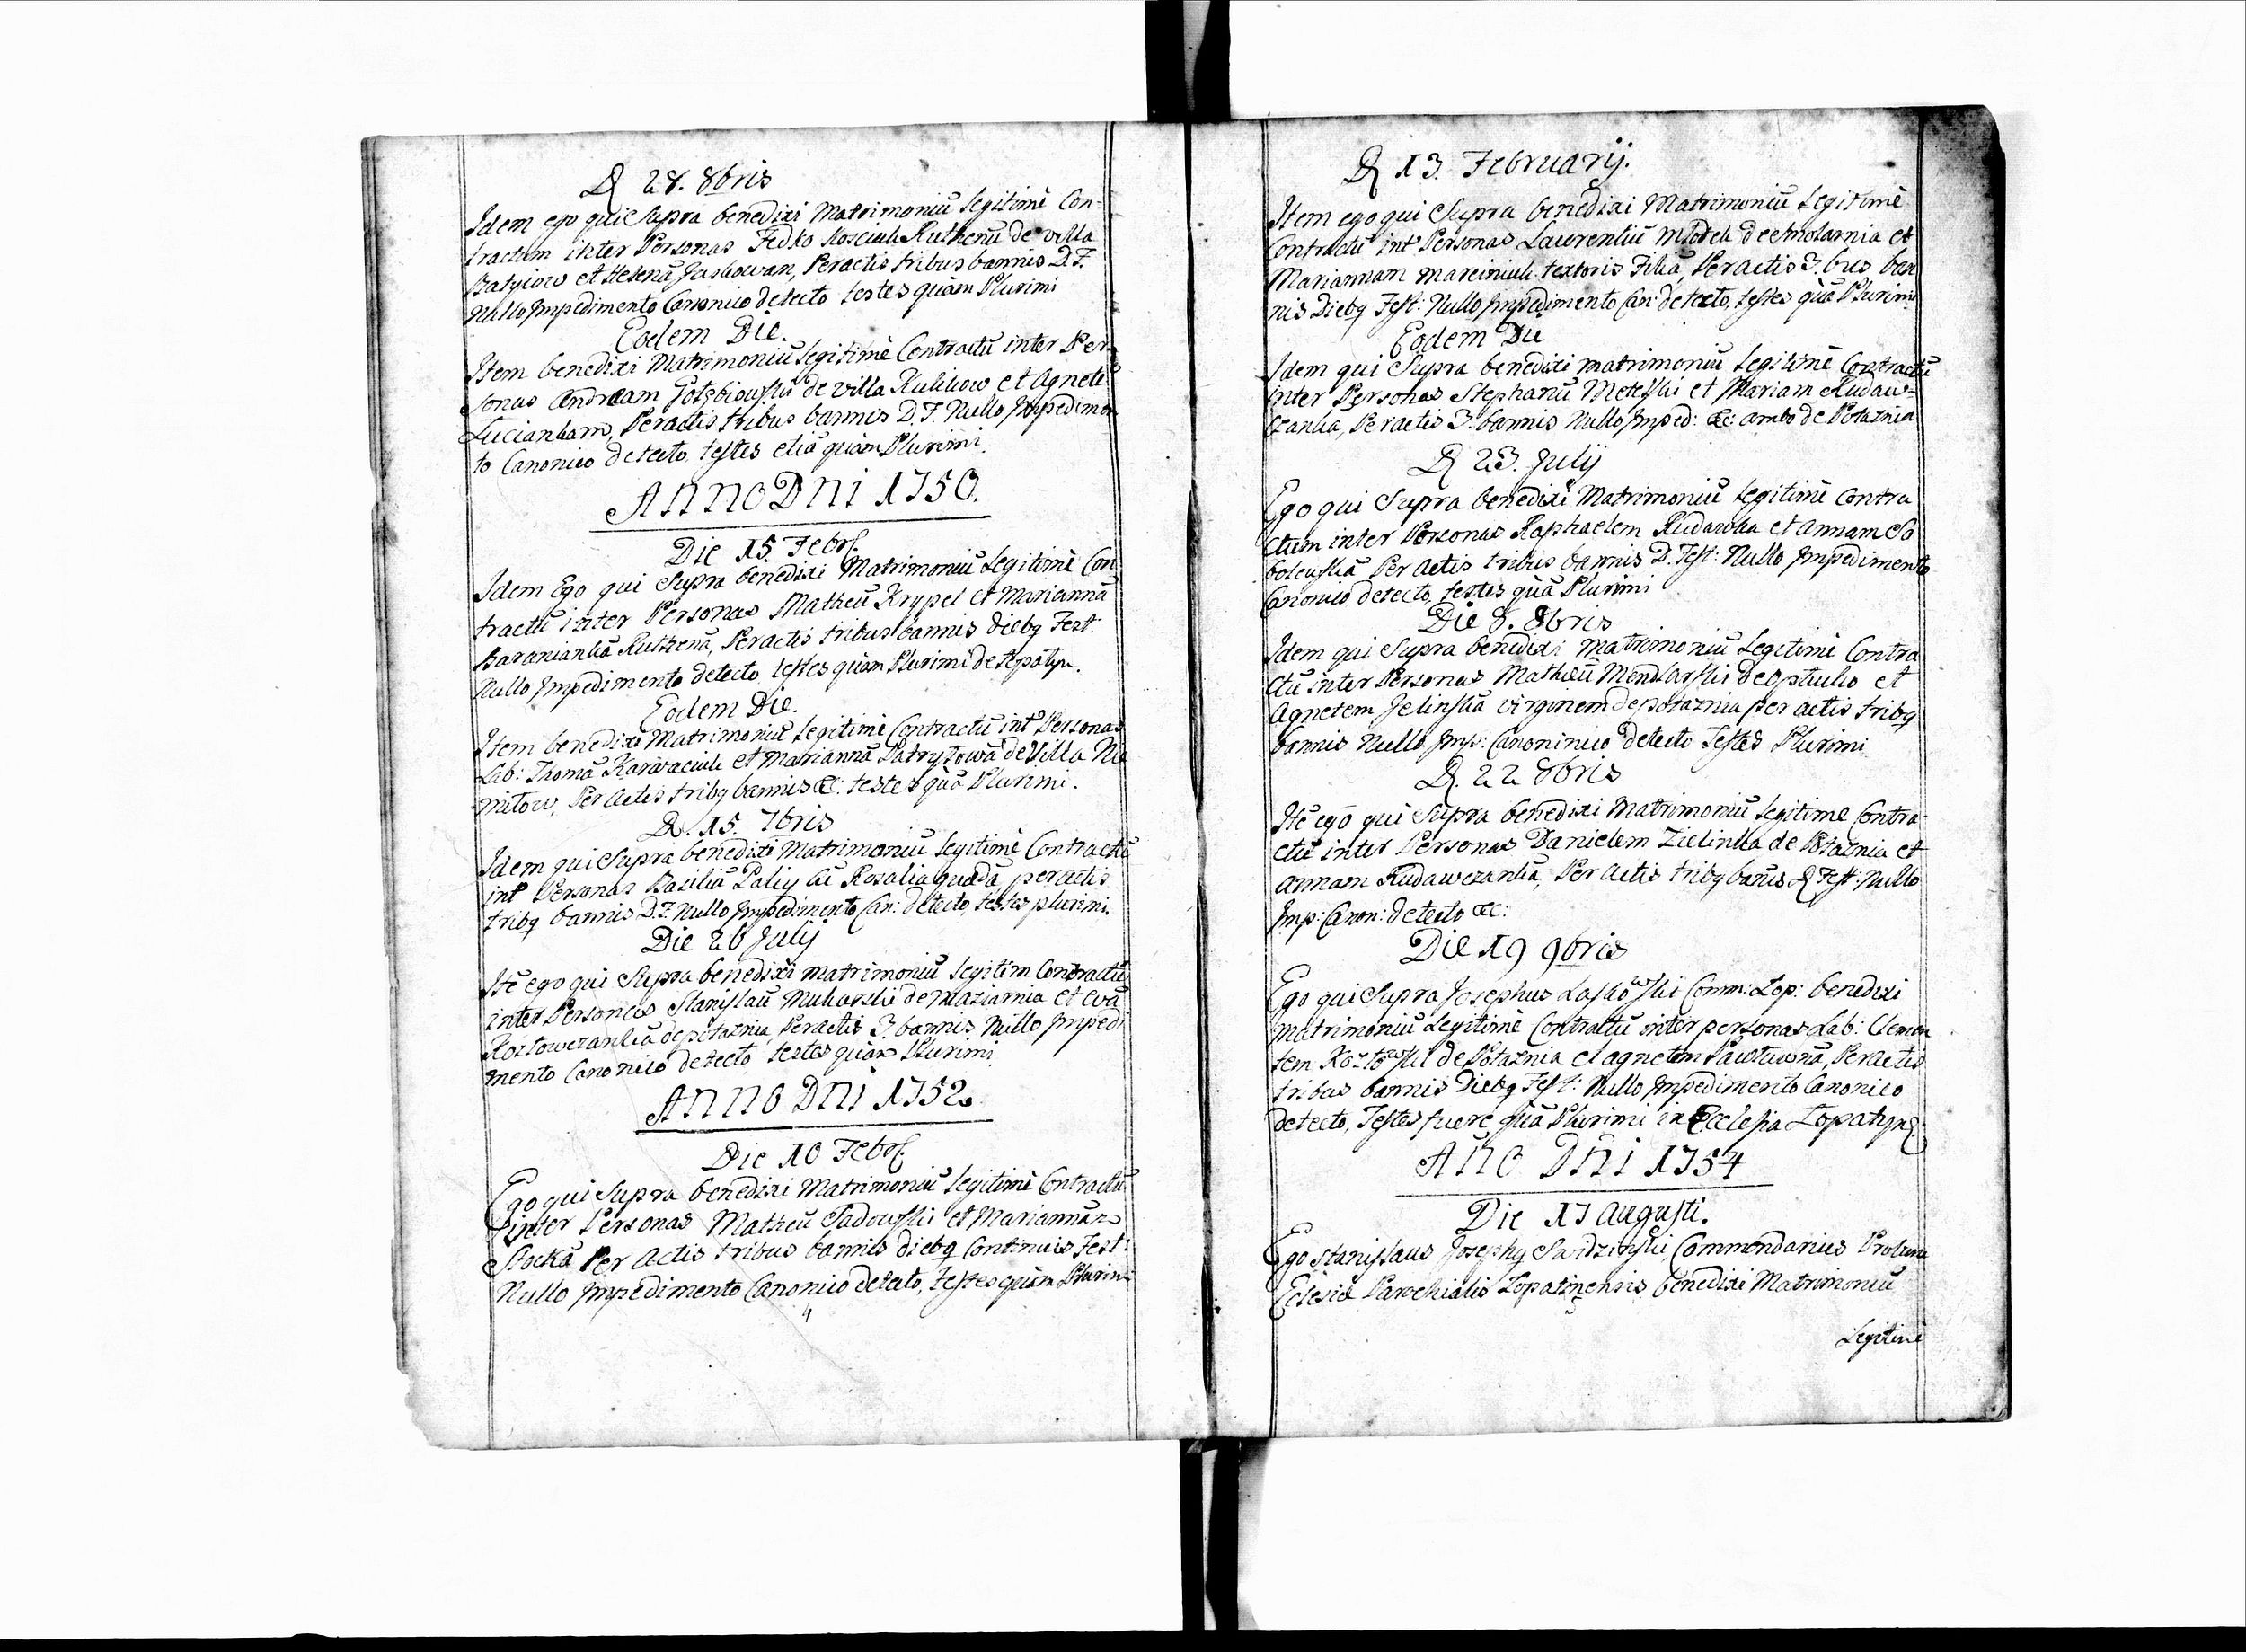 D 28. 8bris
Idem ego qui Supra benedixi Matrimoniū Legitimè Con-
tractum inter Personas Fedko Kosciuk Ruthenū de villa
Batyiow et Helenā Jaskowan, Peractis tribus bannis D.F.
Nullo Impedimento Canonico detecto testes quàm Plurimi
Eodem Die.
Item benedixi Matrimoniū Legitimè Contractū inter Per-
sonas Andream Gołębiouski de villa Kulikow et Agnete
Luciankam, Peractis tribus bannis D.F. Nullo Impedimen
to Canonico detecto testes etiā quàm Plurimi.
ANNO DNI 1750.
Die 15 Febr.
Idem Ego qui Supra benedixi Matrimoniū Legitimè Con
tractū inter Personas Matheū Krypel et Mariannā
Baraniankā Ruthenā, Peractis tribus bannis diebq Fest:
Nullo Impedimento detecto testes quàm Plurimi
Eodem Die.
Item benedixi Matrimoniū Legitimè Contractū int Personas
Lab: Thomā Karwaciuk et Mariannā de Villa Nie
mitow, Peractis tribq bannis &c: testes quā Plurimi.
D. 15. 7bris
Idem qui Supra benedixi Matrimoniū Legitimè Contractū
int Personas Basiliū Paliy Rosalia quadā peractis
tribq bannis D.F. Nullo Impedimento Can: detecto, testes plurimi.
Die 26 Julij
Itē ego qui Supra benedixi matrimoniū Legitim Contractū
inter Personas Stanislaū de maziarnia et Evā
Kozłowczankā de potaznia Peractis 3. bannis Nullo Impedi
mento Canonico detecto testes quàm Plurimi
ANNO DNI 1752.
Die 10 Febr.
Ego qui Supra benedixi Matrimoniū Legitimè Contractū
inter Personas Matheū Sadowski et Mariannam
Stockā Peractis tribus bannis diebq Continuis Fest:
Nullo Impedimento Canonico detecto, testes quàm Plurimi
4
D 13. Februarij.
Item ego qui Supra benedixi Matrimoniū Legitimè
Contractū int Personas Laurentiū Młodek de Smolarnia et
Mariannam Marciniuk textoris Filiā, Peractis 3.bus ban
nis Diebq Fest: Nullo Impedimento Can: detecto, testes quā Plurimi
Eodem Die
Idem qui Supra benedixi matrimoniū Legitimè Contractū
inter Personas Stephanū Metelski et Mariam Rudaw-
czankā, Peractis 3. bannis Nullo Imped: &c: ambo de Potaznia
D 23. Julij
Ego qui Supra benedixi Matrimoniū Legitimè Contra
ctum inter Personas Raphaelem Rudawka et Annam So
bolewskā Peractis tribus bannis D. Fest: Nullo Impedimento
Canonico detecto, testes quā Plurimi
Die 8. 8bris
Idem qui Supra benedixi matrimoniū Legitimè Contra
ctū inter Personas Matheū Mendlarski de et
Agnetem Jelinskā virginem de potaznia peractis tribq
bannis Nullo Imp: Canoninico detecto Testes Plurimi
D. 22 8bris
Itē ego qui Supra benedixi Matrimoniū Legitime Contra-
ctū inter Personas Danielem Zielinka de Potaznia et
Annam Rudawczankā, Peractis tribq banis D Fest: Nullo
Imp: Canon: detecto &c:
Die 19 9bris
Ego qui Supra Josephus Laskowski Comm: Lop: benedixi
matrimoniū Legitimè Contractū inter personas Lab: Clemen
tem Kozłowski de Potaznia et agnetem Pawłuwnā, Peractis
tribus bannis Diebq Fest: Nullo Impedimento Canonico
detecto, Testes fuere quā Plurimi in Ecclesia Lopatyn:
AÑO DÑI 1754
Die 17 Augusti.
Ego Stanislaus Josephq Commendarius Protunc
Eclesiæ Parochialis Lopatinensis benedixi Matrimoniū
Legitimè